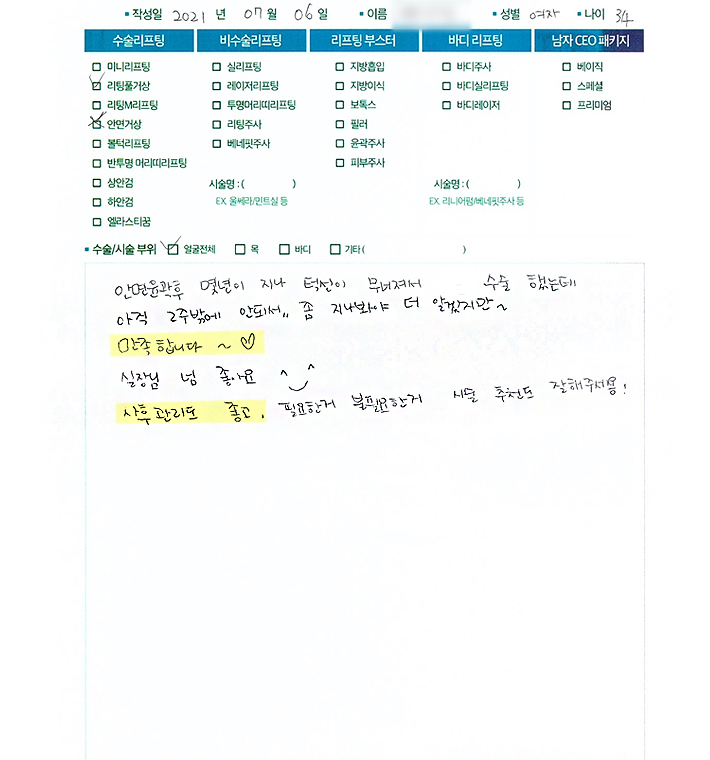 ▪ 작성일 2021 년 07 월 06 일 ▪ 이름 ▪ 성별 여자 ▪ 나이 34
수술리프팅 비수술리프팅 리프팅 부스터 바디 리프팅 남자 CEO 패키지
미니리프팅 실리프팅 지방흡입 바디주사 베이직
리팅풀거상 레이저리프팅 지방이식 바디실리프팅 스페셜
리팅M리프팅 투명머리띠리프팅 보톡스 바디레이저 프리미엄
안면거상 리팅주사 필러
볼턱리프팅 베네핏주사 윤곽주사
반투명 머리띠리프팅 피부주사
상안검 시술명 : ( ) 시술명 : ( )
하안검 EX. 울쎄라/민트실 등 EX. 리니어펌/베네핏주사 등
엘라스티꿈
▪ 수술/시술 부위 얼굴전체 목 바디 기타 ( )
안면윤곽후 몇년이 지나 턱선이 무너져서 수술 했는데
아직 2주밖에 안되서,, 좀 지나봐야 더 알겠지만~
만족합니다 ~ ♡
실장님 넘 좋아요 ^‿^
사후관리도 좋고, 필요한거 불필요한거 시술 추천도 잘해주셔용!